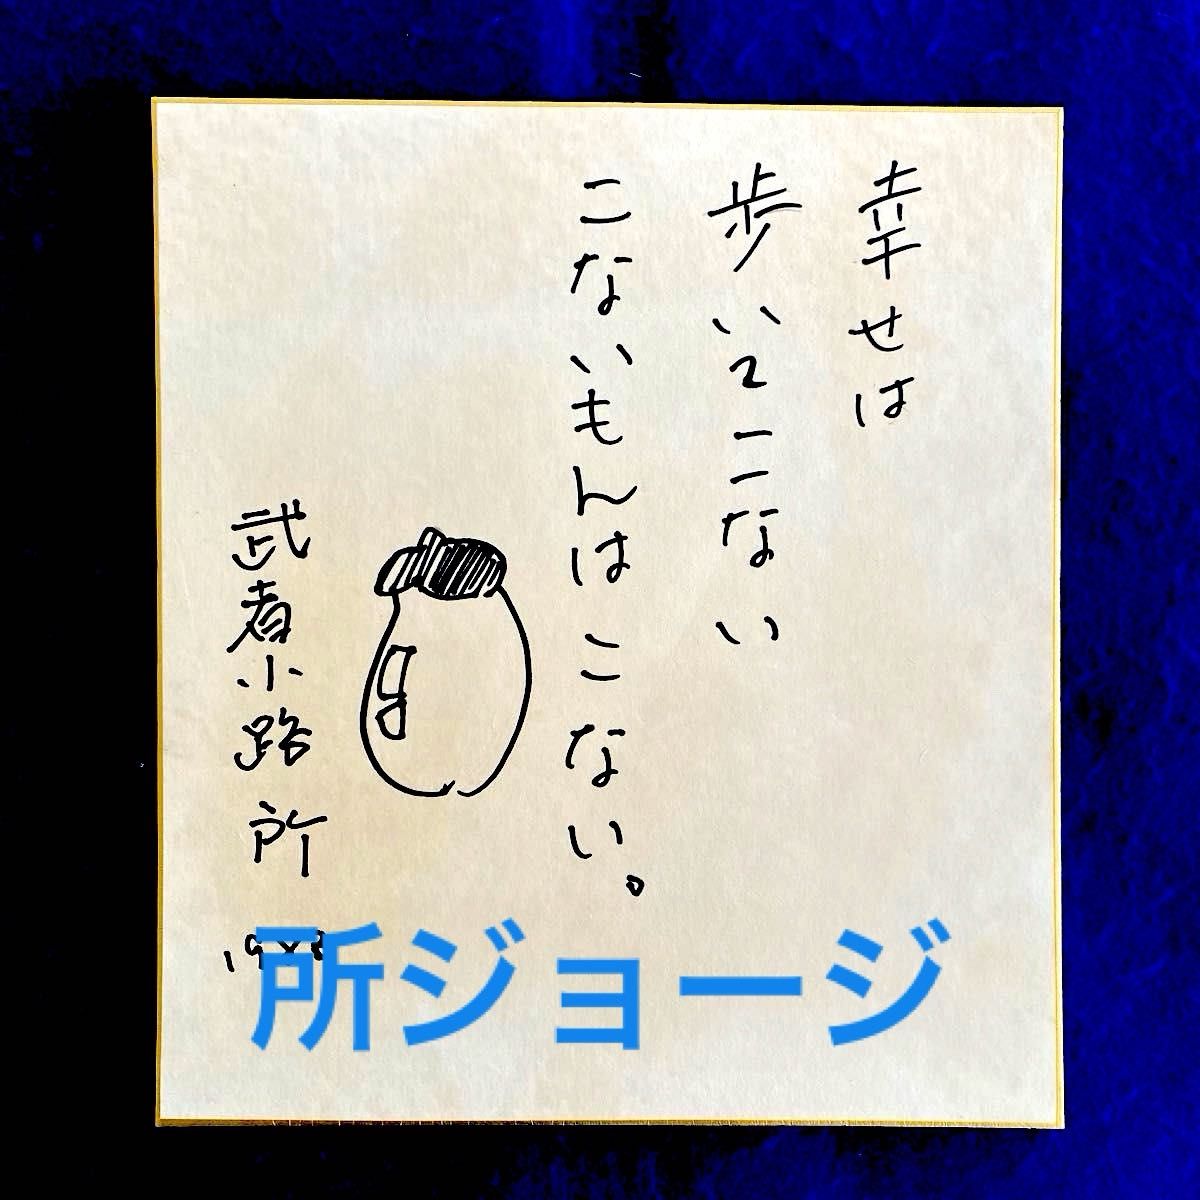 幸せは
歩いてこない
こないもんはこない。
武者小路所
所ジョージ